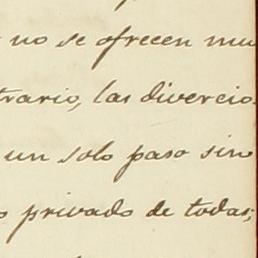 no se ofrecen mu
trario, las divercio
un solo paso sin
o privado de todas;